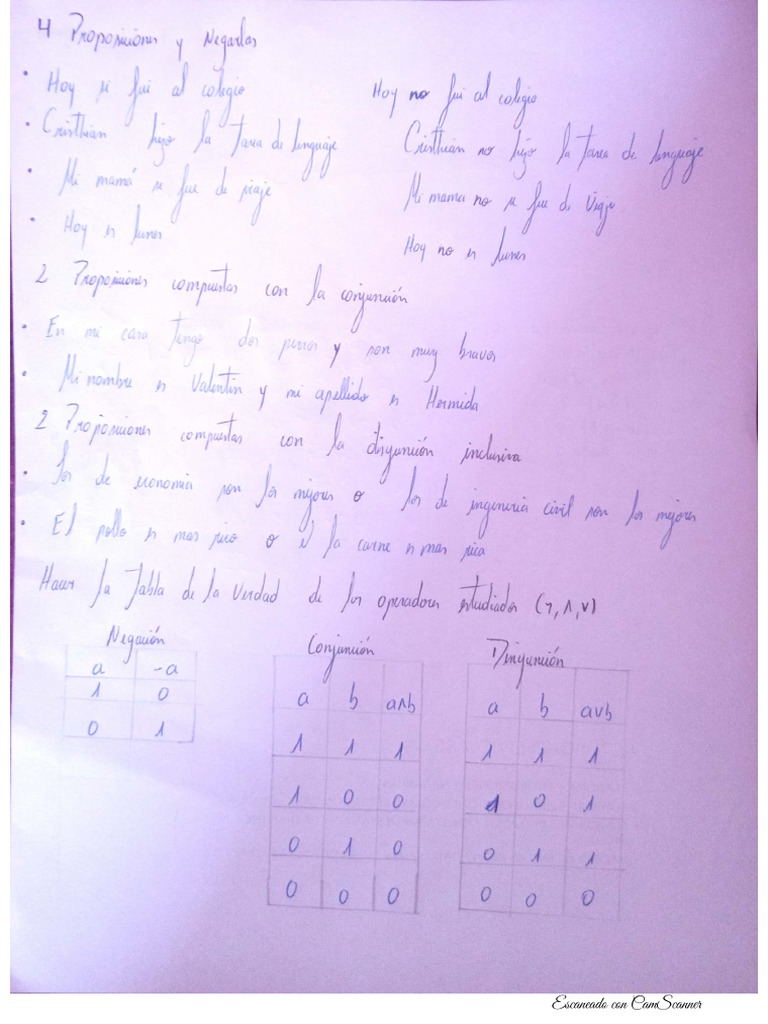 4 Proposiciones y Negarlas
• Hoy si fui al colegio    Hoy no fui al colegio
• Cristhian hijo la tarea de lenguaje    Cristhian no hijo la tarea de lenguaje
• Mi mamá se fue de viaje    Mi mama no se fue de viaje
• Hoy es lunes    Hoy no es lunes
2 Proposiciones compuestas con la conjunción
• En mi casa tengo dos perros y son muy bravos
• Mi nombre es Valentin y mi apellido es Hermida
2 Proposiciones compuestas con la disyunción inclusiva
• Los de economia son los mejores o los de ingenieria civil son los mejores
• El pollo es mas rico o la carne es mas rica
Hacer la Tabla de la Verdad de los operadores estudiados (¬, ∧, ∨)
Negación
a -a
1 0
0 1
Conjunción
a b a∧b
1 1 1
1 0 0
0 1 0
0 0 0
Disyunción
a b a∨b
1 1 1
1 0 1
0 1 1
0 0 0
Escaneado con CamScanner